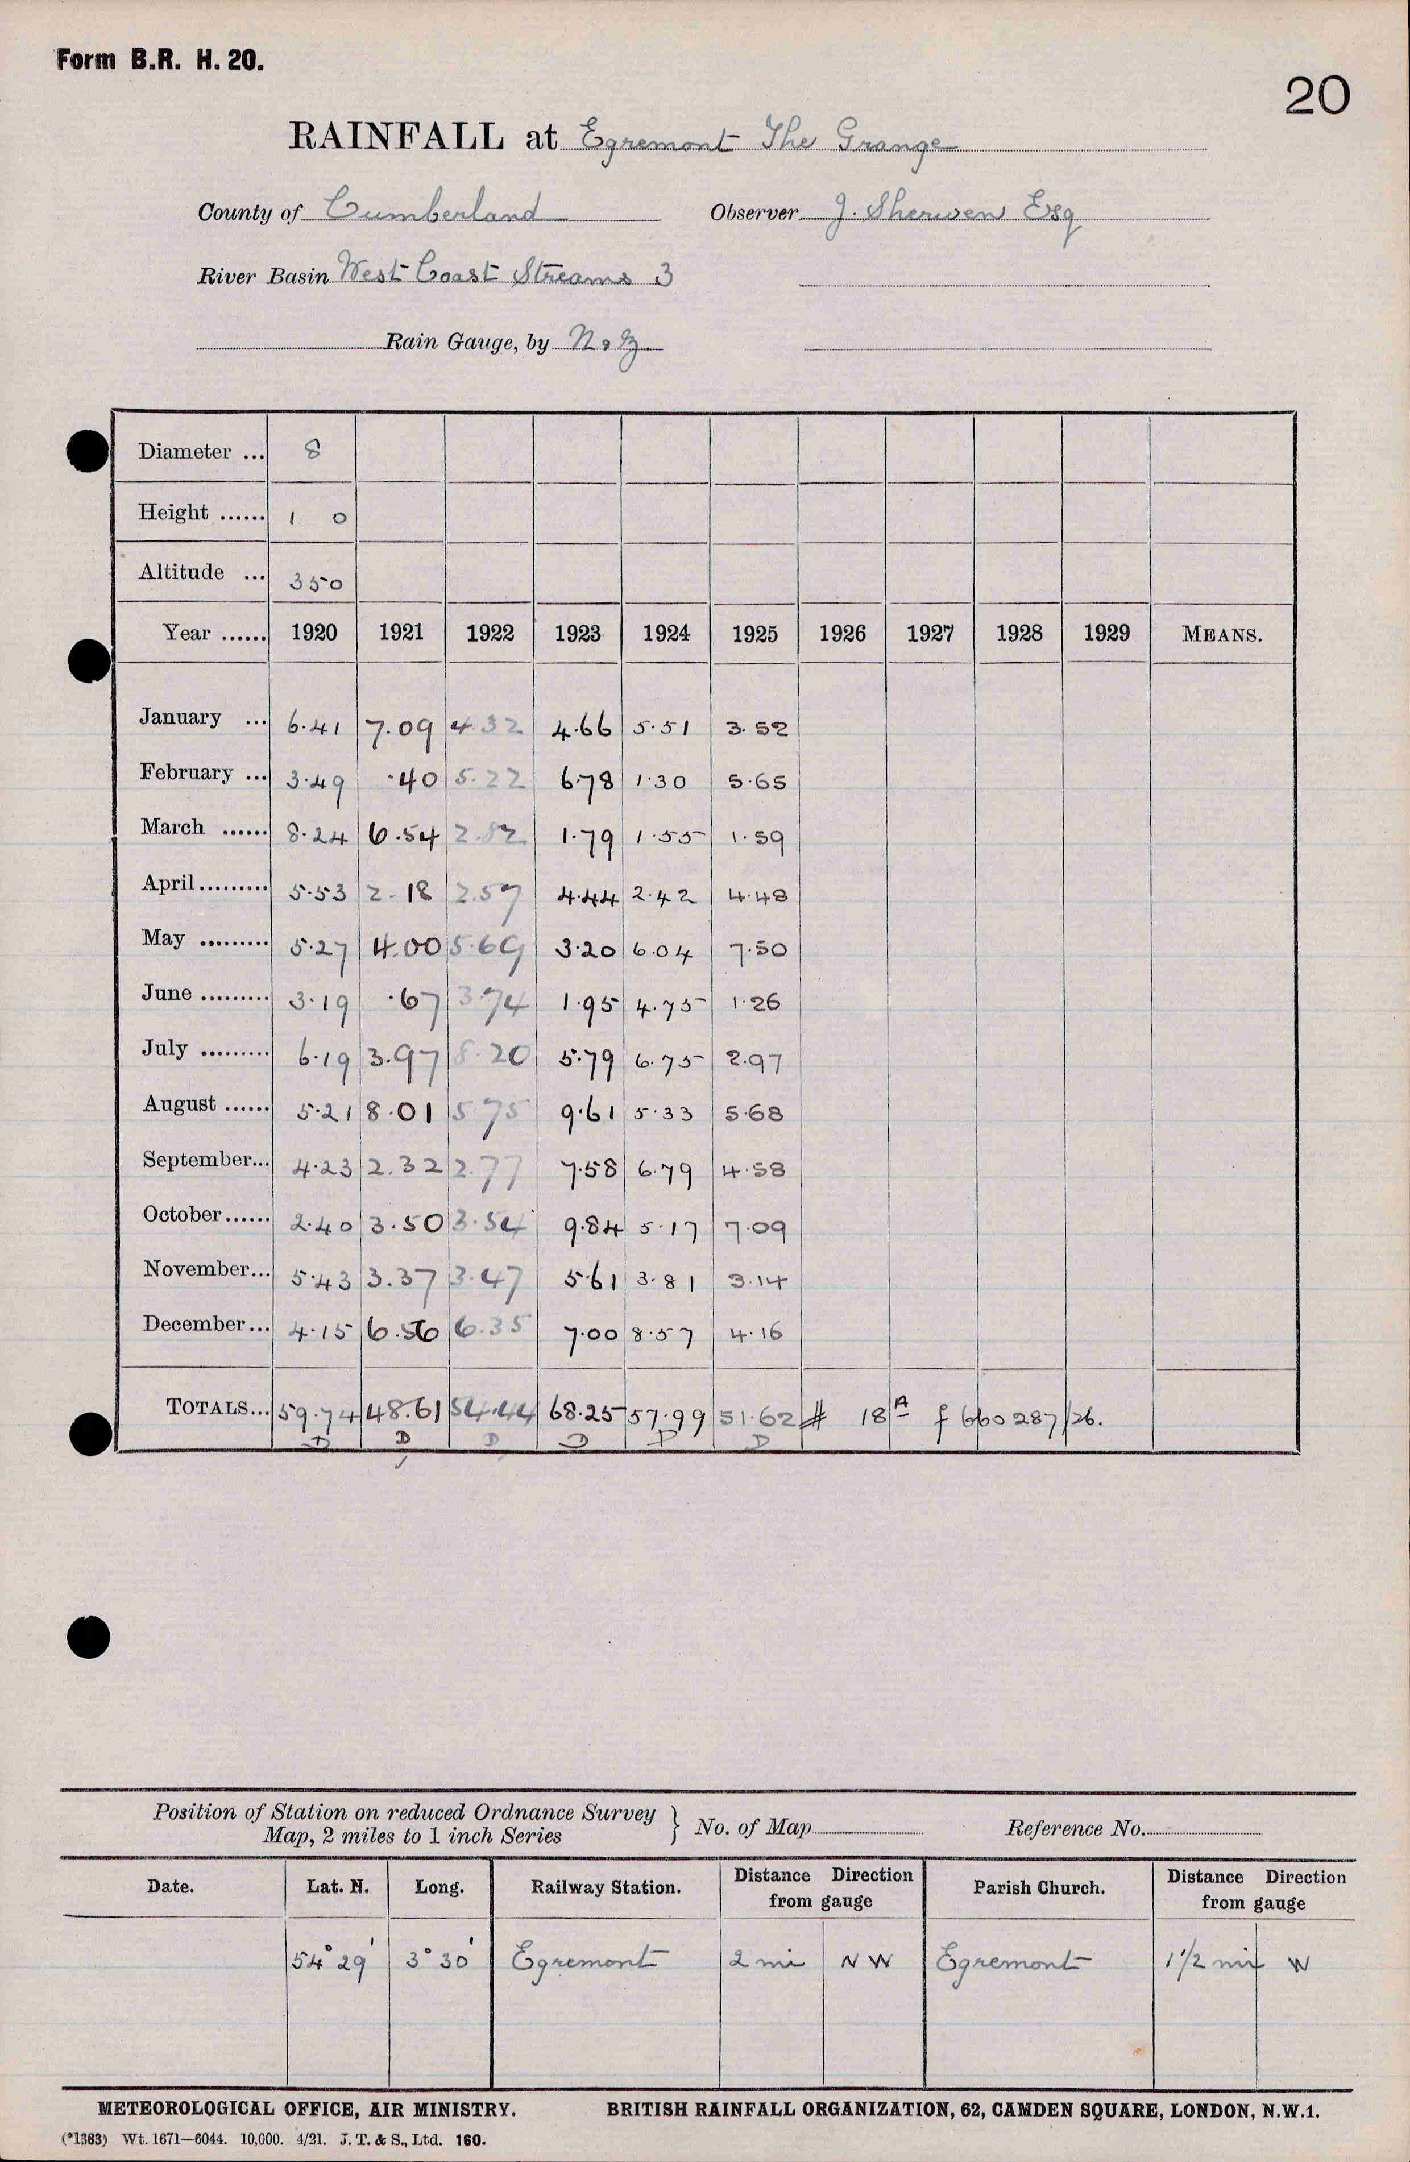 Form B.R. H. 20.
20
RAINFALL at Egremont The Grange
County of Cumberland Observer J. Sherwen Esq
River Basin West Coast Streams 3
Rain Gauge, by N & Z
Diameter ... 8
Height ...... 1 0
Altitude ... 350
Year ...... 1920 1921 1922 1923 1924 1925 1926 1927 1928 1929 MEANS.
January ... 6.41 7.09 4.32 4.66 5.51 3.52
February ... 3.49 .40 5.22 6.78 1.30 5.65
March ...... 8.24 6.54 2.82 1.79 1.55 1.59
April ......... 5.53 2.18 2.57 4.44 2.42 4.48
May ......... 5.27 4.00 5.69 3.20 6.04 7.50
June ......... 3.19 .67 3.74 1.95 4.75 1.26
July ......... 6.19 3.97 8.20 5.79 6.75 2.97
August ...... 5.21 8.01 5.75 9.61 5.33 5.68
September... 4.23 2.32 2.77 7.58 6.79 4.58
October...... 2.40 3.50 3.54 9.84 5.17 7.09
November... 5.43 3.37 3.47 5.61 3.81 3.14
December... 4.15 6.56 6.35 7.00 8.57 4.16
TOTALS... 59.74 48.61 54.44 68.25 57.99 51.62 # 18A f 660287/26.
D D D D D D
Position of Station on reduced Ordnance Survey
Map, 2 miles to 1 inch Series } No. of Map Reference No.
Date. Lat. N. Long. Railway Station. Distance Direction from gauge Parish Church. Distance Direction from gauge
54° 29' 3° 30' Egremont 2 mi NW Egremont 1 1/2 mi W
METEOROLOGICAL OFFICE, AIR MINISTRY. BRITISH RAINFALL ORGANIZATION, 62, CAMDEN SQUARE, LONDON, N.W.1.
(*1383) Wt. 1671—6044. 10,000. 4/21. J. T. & S., Ltd. 160.